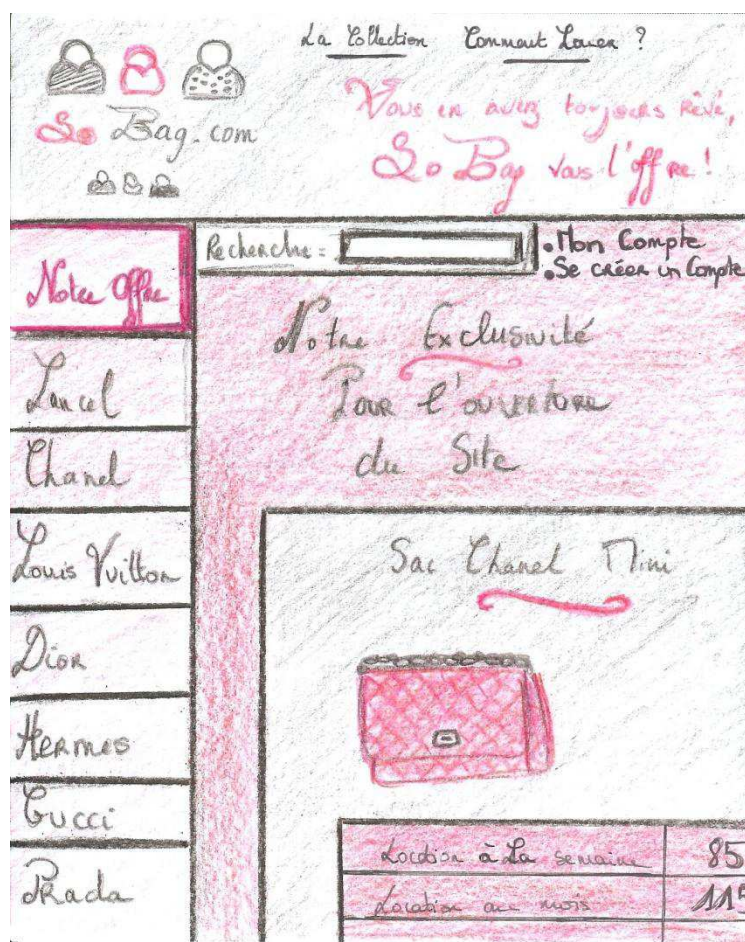 La Collection Comment Louer ?
So Bag.com
Vous en avez toujours rêvé,
So Bag vous l'offre !
Notre Offre
Lancel
Chanel
Louis Vuitton
Dior
Hermes
Gucci
Prada
Recherche :
• Mon Compte
• Se créer un Compte
Notre Exclusivité
Pour l'ouverture
du Site
Sac Chanel Mini
Location à La semaine 85
Location au mois 115